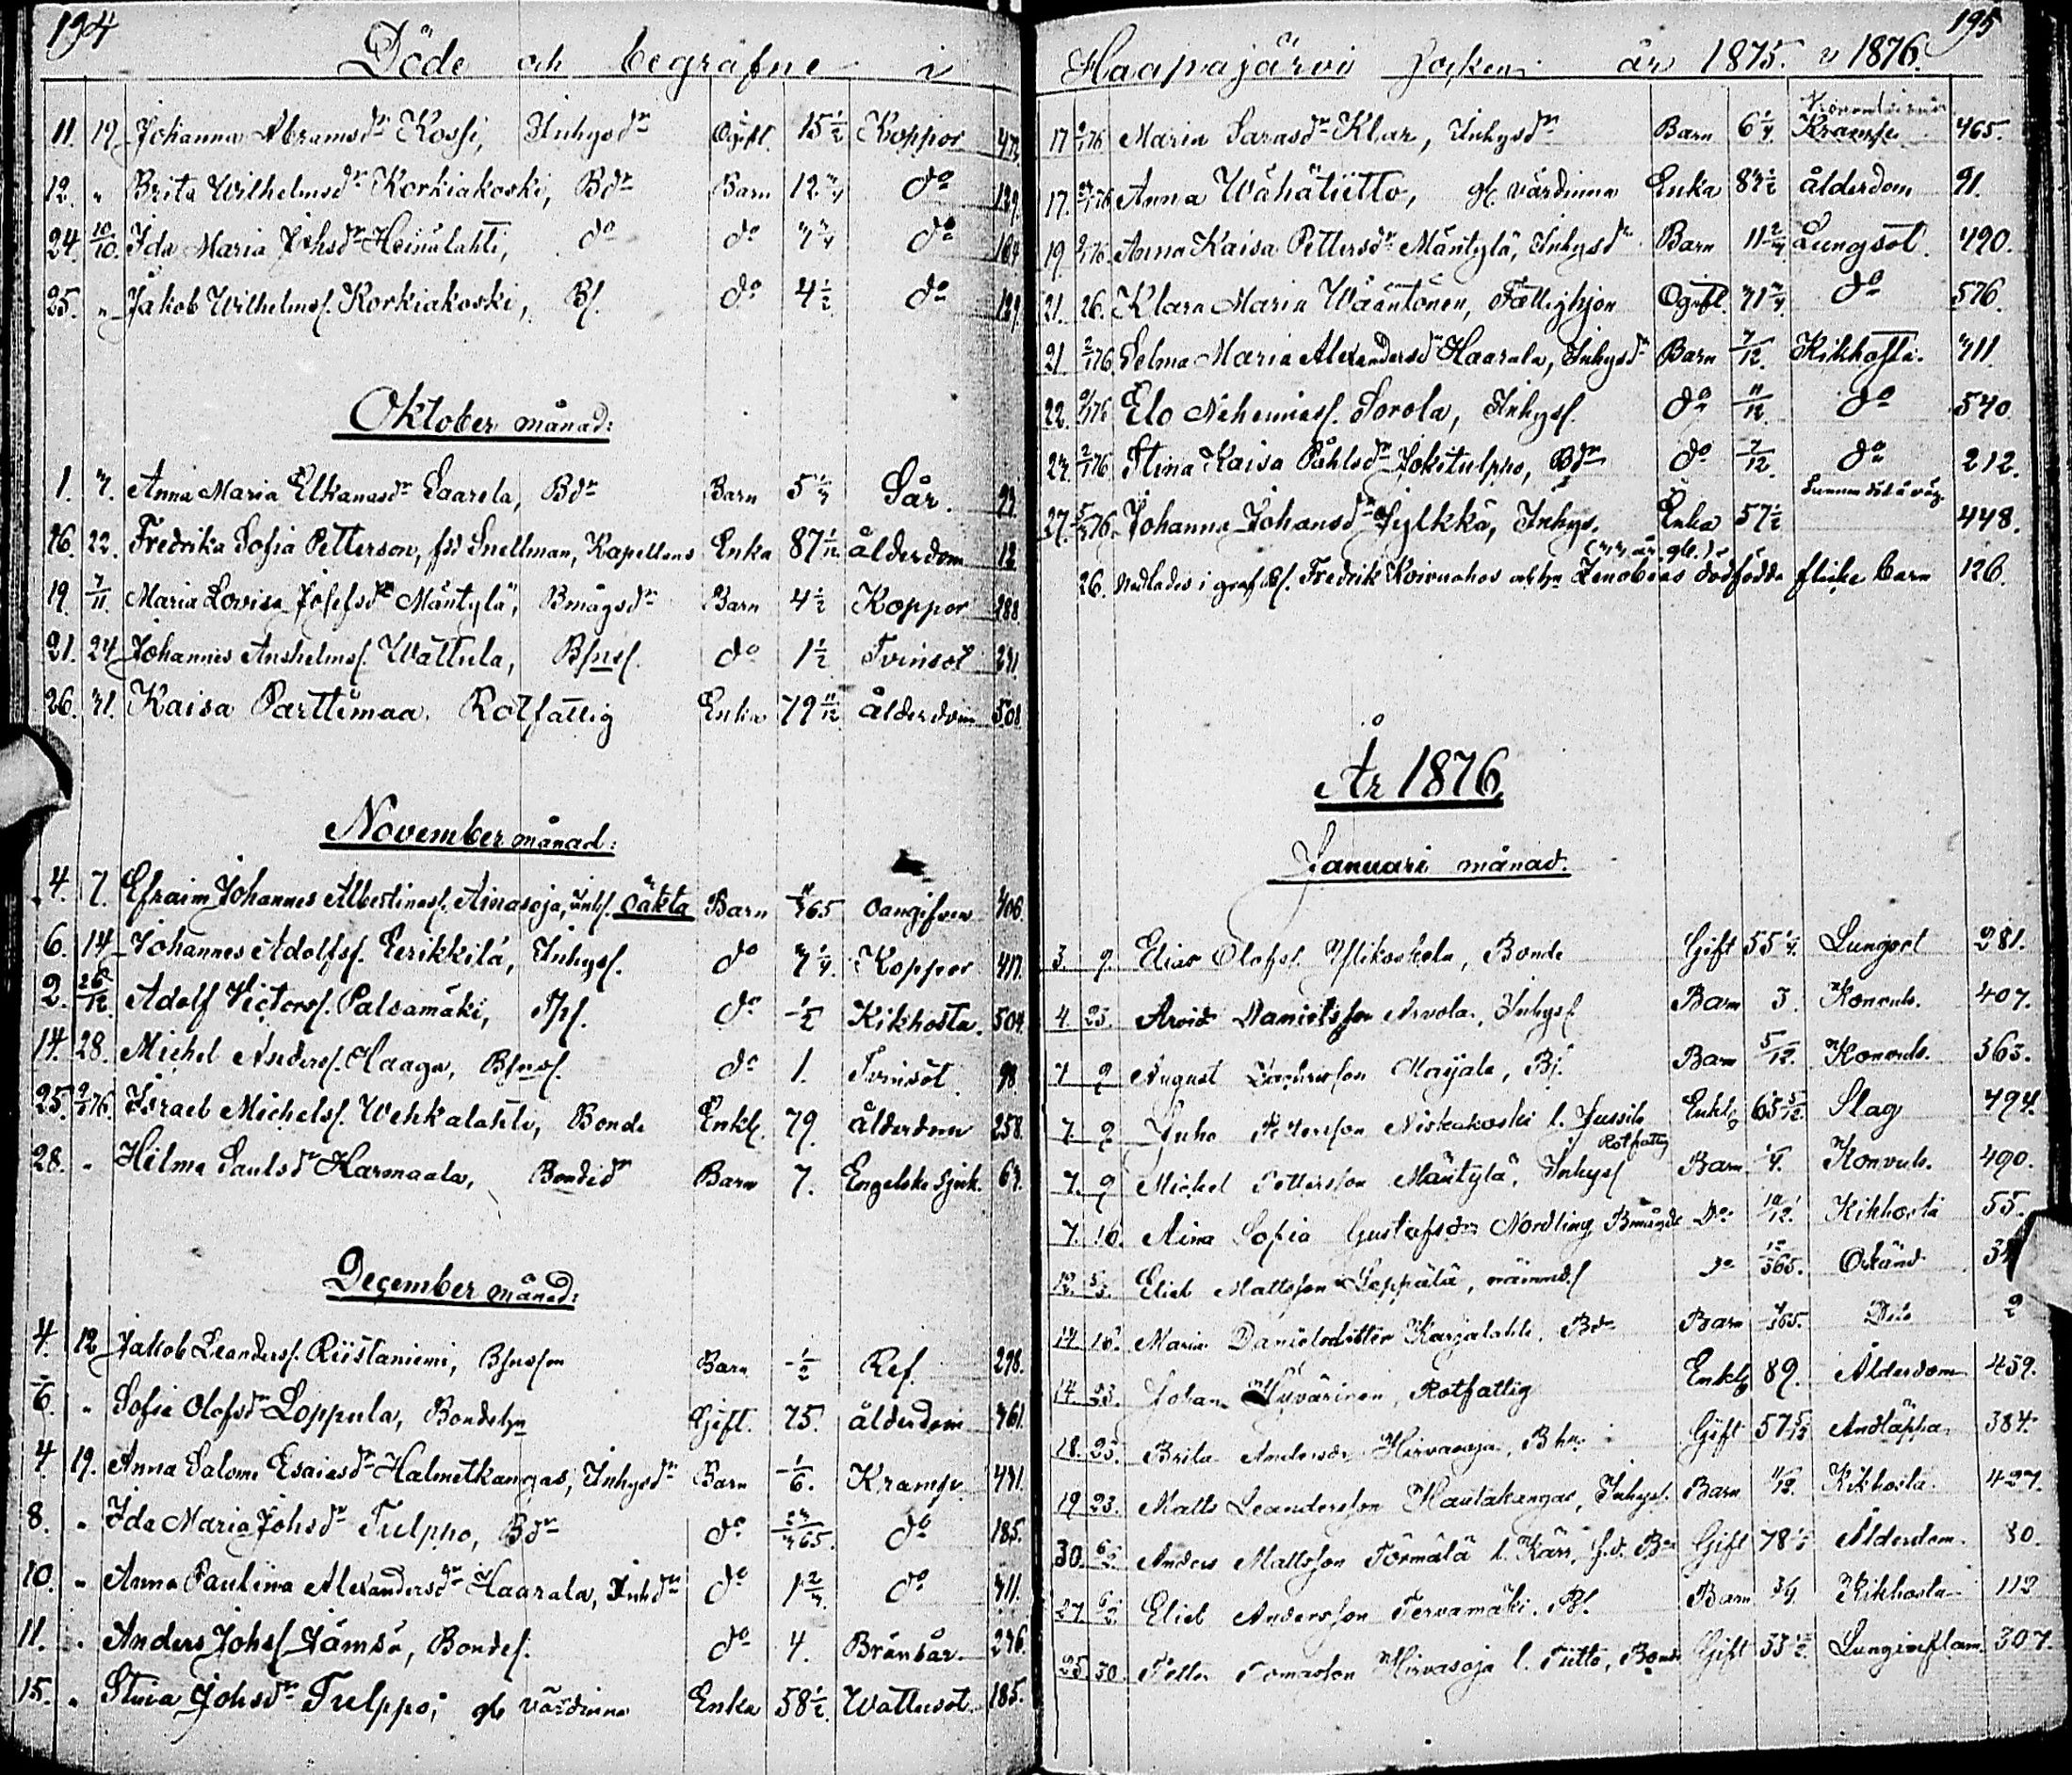 194
Döde och begrafne i
11. 19. Johanna Abramsdr Kossi, Inhysdr Ogift. 15 1/2 Koppor
12. " Brita Wilhelmsdr Korkiakoski, Bdr Barn 12 3/4 do 129.
24. 10/10. Ida Maria Johsdr Heinälahti, do do 3 3/4 do 184
25. " Jakob Wilhelmss. Korkiakoski, Bs. do 4 1/2 do 129.
Oktober månad:
1. 3. Anna Maria Elkanasdr Saarela, Bdr Barn 5 1/4 Sår. 93.
16. 22. Fredrika Sofia Petterson, fdd Snellman, Kapellans Enka 87 1/12 ålderdom 12
19. 7/11. Maria Lovisa Josefsdr Mäntylä, Bmågsdr Barn 4 1/2 Koppor 288
21. 24 Johannes Anshelmss. Wattula, Bsns. do 1 1/2 Tvinsot 231.
26. 31. Kaisa Parttimaa. Rotfattig Enka 79 11/12 ålderdom 508
November månad:
4. 7. Efraim Johannes Albertinass. Ainasoja, Inhs. oäkta Barn /365 oangifven 406.
6. 14 Johannes Adolfss. Eerikkilä, Inhyss. do 3 1/4. Koppor 417.
2. 26/12. Adolf Victorss. Palosamäki, Tps. do 1/2 Kikhosta. 504.
14. 28. Michel Anderss. Haaga, Bsns. do 1. Tvinsot 98
25. 2/1 76. Israel Michelss. Wehkalahti, Bonde Enkl. 79. ålderdom 258.
28. " Hilma Saulsdr Harmaala, Bondedr Barn 7. Engelska sjuk. 63.
December månad:
4. 12 Jakob Leanderss. Riistaniemi, Bsnsson Barn 1/2 Ref. 298.
6. " Sofia Olofsdr Loppula, Bondehn Gift. 75. ålderdom 361.
4 19. Anna Salome Esaiasdr Halmetkangas, Inhysdr Barn 1/6. Kramp. 431.
8. " Ida Maria Johsdr Tulppo, Bdr do 23/365. do 185.
10. " Anna Paulina Alexandersdr Haarala, Inhdr do 1 2/3. do 311.
11. " Anders Johss. Jämsä, Bondes. do 4. Brännsår. 236.
15. " Stina Johsdr Tulppo, gl. värdinna Enka 58 1/2. Wattusot. 185.
195
Haapajärvi Socken år 1875. o 1876.
17 2/1 76 Maria Sarasdr Klar, Inhysdr Barn 6 1/4. Kramp. 465.
17. /1 76 Anna Wähätiitto, gl. värdinna Enka 83 1/2 ålderdom 91.
19 /1 76. Anna Kaisa Pettersdr Mäntylä, Inhysdr Barn 11 2/4 Lungsot. 490.
21. 26. Klara Maria Wääntönen, Fattighjon Ogift. 31 3/4. do 576.
21. 2/1 76. Selma Maria Alexandersdr Haarala, Inhysdr Barn 7/12. Kikhosta. 311.
22. 9/1 76 Elo Nehemiass. Sorola, Inhyss. do 11/12. do 540
23. 2/1 76. Stina Kaisa Påhlsdr Jokitulppo, Bdr do 7/12. do 212.
27. 5/3 76. Johanna Johansdr Jylkkä, Inhys. Enka 57 1/2 448.
26. Nedlades i graf Bs. Fredrik Koivuahos o hn Zenobias dödfödda flicke barn 126.
År 1876.
Januari månad.
3. 9. Elias Olofss. Ylikoskela, Bonde Gift 55 1/4. Lungsot 281.
4. 23. Arvid Danielsson Arvola, Inhyss. Barn 3. Konvuls. 407.
7 9 August Zachrisson Marjala, Bs. Barn 5/12. Konvuls. 363.
7. 9 Juho Pettersson Niskakoski l. Jussila Enkl. 65 5/12. Slag 494.
Rotfattig
7. 9 Michel Pettersson Mäntylä, Inhyss Barn 1/4. Konvuls. 490.
7. 16. Aina Sofia Gustafsdr Nordling, Bmågdr Do 10/12. Kikhosta 55.
12. Elieb Mattsson Seppälä, nämnd.s do 12/365. Okänd
14 16. Maria Danielsdotter Karjalahti, Bdr Barn /365. Dito 2
14. 23. Johan Hyvärinen, Rotfattig Enkl. 89. Ålderdom 459.
18. 23. Brita Andersdr Hirvasoja, Bhn. Gift 57 5/12 Andtäppa. 384.
19 23. Matts Leandersson Hautakangas, Inhyss. Barn /12. Kikhosta. 427.
30. 6/2. Anders Mattsson Törmälä l. Kärr, f.d. Bn Gift 78 1/2 Ålderdom. 80.
27. 6/2. Elieb Andersson Tervamäki. Bs. Barn 3/4 Kikhosta 112
25. 30. Petter Tomasson Hirvasoja l. Tiitto, Bonde Gift 53 1/2 Lunginflam. 307.